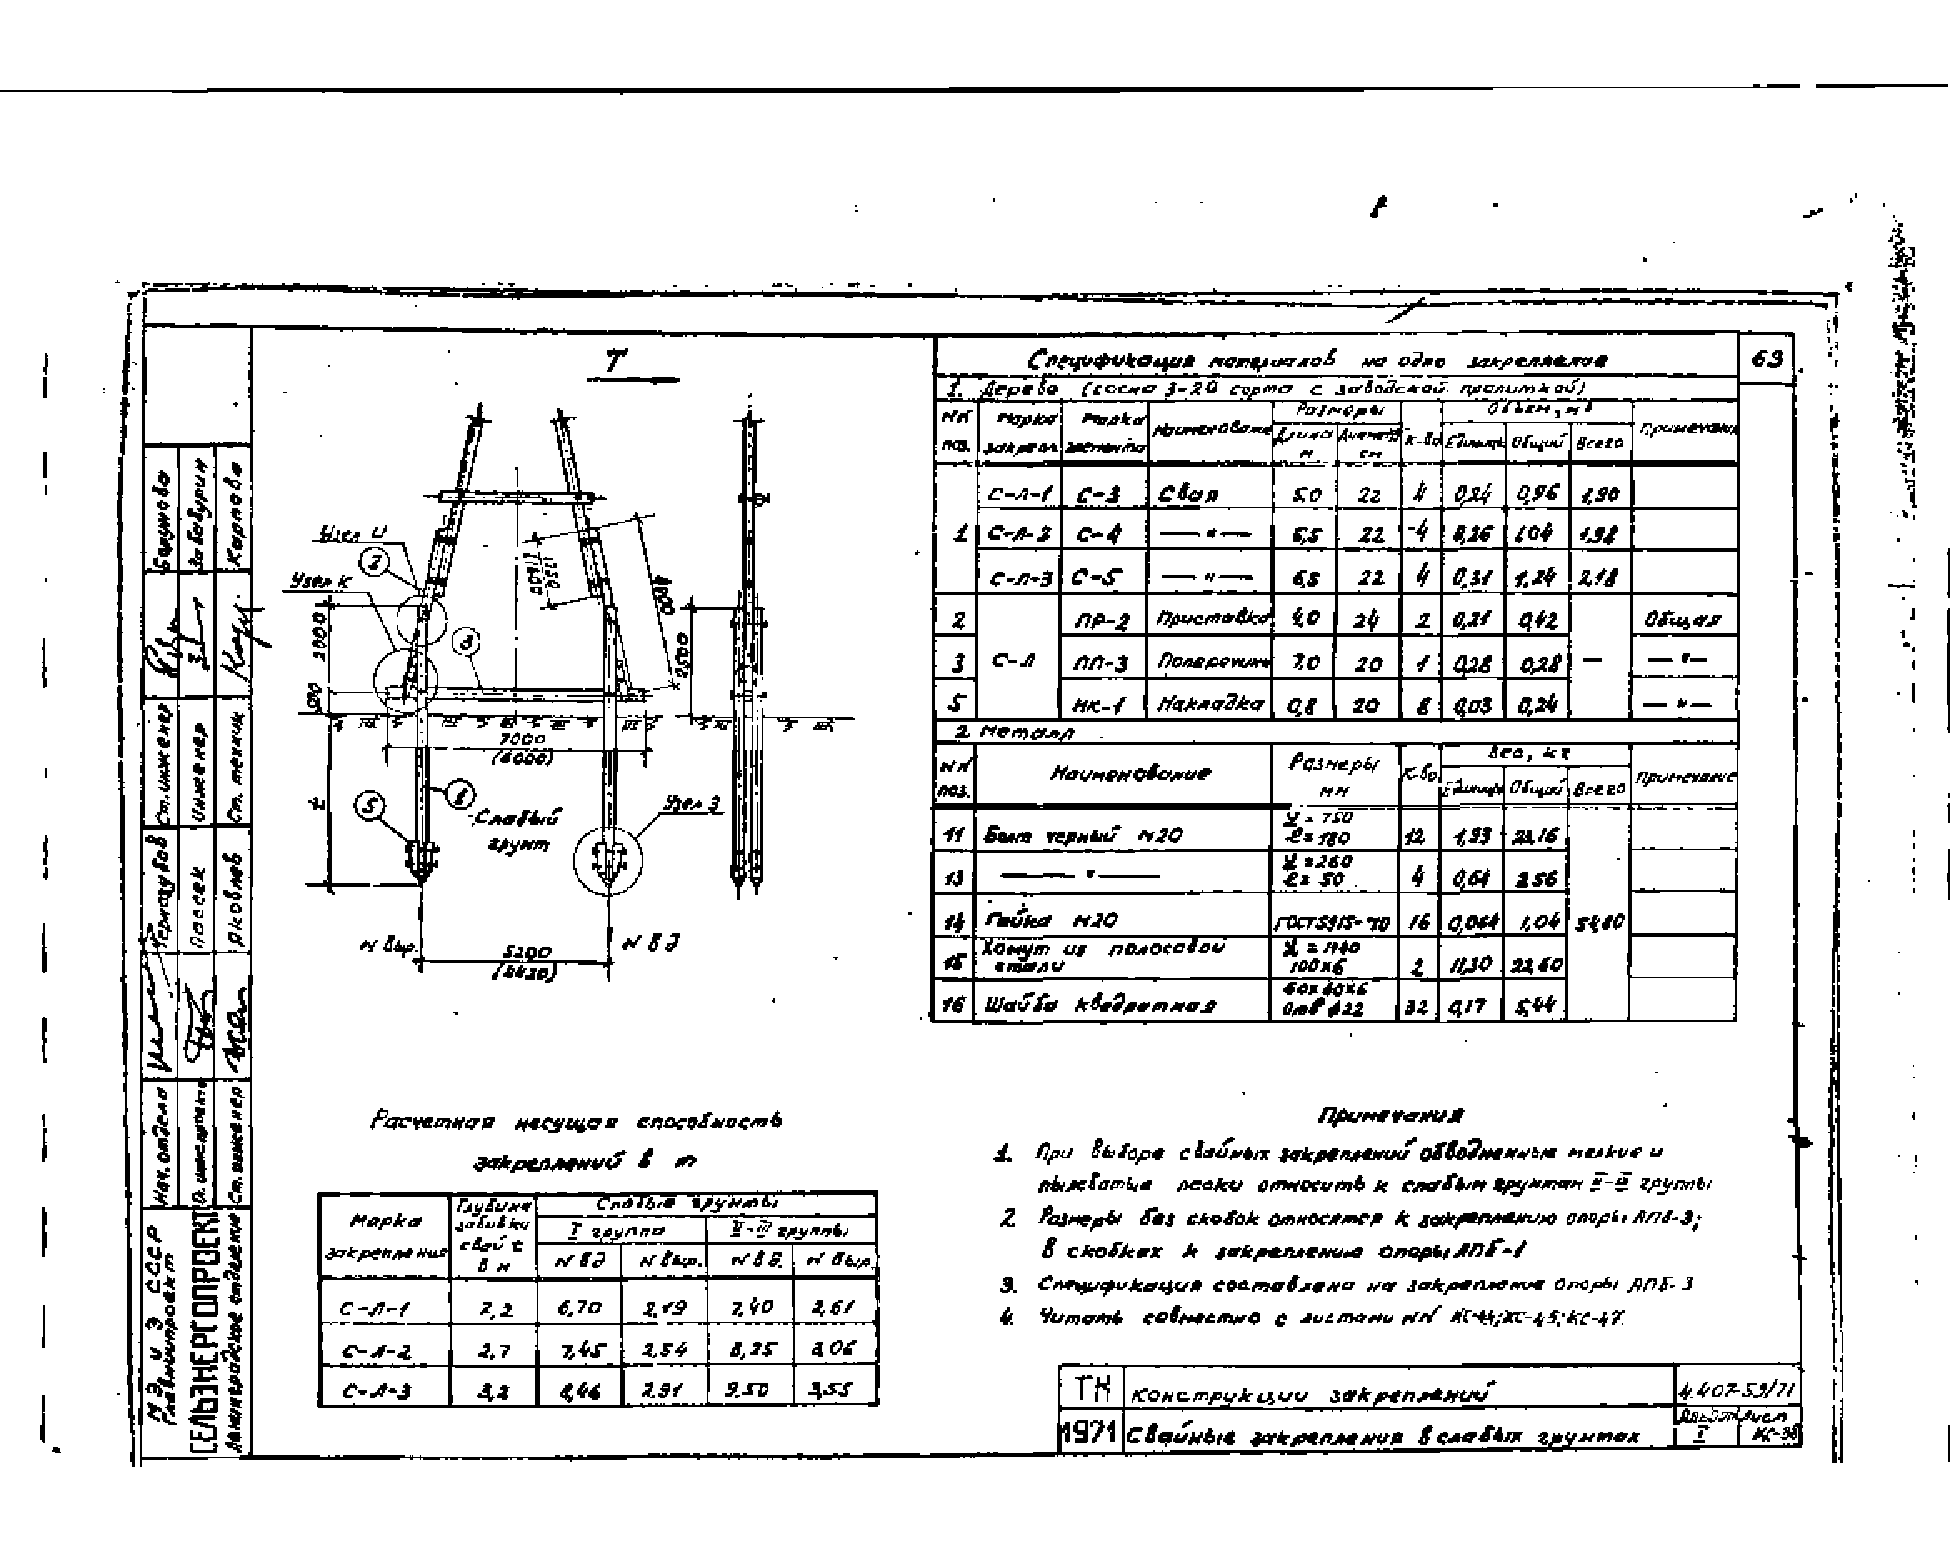 63
Т
Узел И
2
Узел К
2000
500
3
1750
(1400)
4000
2500
7000
(6000)
t
5
1
Слабый
грунт
Узел З
N выр.
N вд
5200
(4450)
Спецификация материалов на одно закрепление
1. Дерево (сосна 3-го сорта с заводской пропиткой)
NN поз. | Марка закрепл. | Марка элемента | Наименование | Размеры: Длина м | Диаметр см | К-во | Объем, м³: Единицы | Общий | Всего | Примечание
1 | С-Л-1 | С-3 | Свая | 6,0 | 22 | 4 | 0,24 | 0,96 | 1,90
С-Л-2 | С-4 | —"— | 6,5 | 22 | 4 | 0,26 | 1,04 | 1,98
С-Л-3 | С-5 | —"— | 6,8 | 22 | 4 | 0,31 | 1,24 | 2,18
2 | С-Л | ПР-2 | Приставка | 4,0 | 24 | 2 | 0,21 | 0,42 | — | Общая
3 | ПП-3 | Поперечина | 7,0 | 20 | 1 | 0,28 | 0,28 | —"—
5 | НК-1 | Накладка | 0,8 | 20 | 8 | 0,03 | 0,24 | —"—
2 Металл
NN поз. | Наименование | Размеры мм | К-во | Вес, кг: Единицы | Общий | Всего | Примечание
11 | Болт черный М20 | L=750 l=180 | 12 | 1,93 | 23,16 | 54,80
13 | —"— | L=260 l=50 | 4 | 0,64 | 2,56
14 | Гайка М20 | ГОСТ 5915-70 | 16 | 0,064 | 1,04
15 | Хомут из полосовой стали | L=1140 100×6 | 2 | 11,30 | 22,60
16 | Шайба квадратная | 60×60×6 Отв ф22 | 32 | 0,17 | 5,44
Расчетная несущая способность
закреплений в т
Марка закрепления | Глубина забивки свай t в м | Слабые грунты: I группа N вд | N выр. | II-III группы N вд | N выр
С-Л-1 | 2,2 | 6,70 | 2,19 | 7,40 | 2,61
С-Л-2 | 2,7 | 7,45 | 2,54 | 8,25 | 3,06
С-Л-3 | 3,2 | 8,46 | 2,91 | 9,50 | 3,55
Примечания
1. При выборе свайных закреплений обводненные мелкие и
пылеватые пески относить к слабым грунтам II-III группы
2. Размеры без скобок относятся к закреплению опоры АПБ-3;
в скобках к закреплению опоры АПБ-1
3. Спецификация составлена на закрепление опоры АПБ-3
4. Читать совместно с листами NN КС-44; КС-45; КС-47.
ТК
1971
Конструкции закреплений
Свайные закрепления в слабых грунтах
4.407-59/71
Лист
I
КС-38
М Э и Э СССР
Главниипроект
СЕЛЬЭНЕРГОПРОЕКТ
Ленинградское отделение
Нач. отдела
Ст. инженер
Пассек
Яковлев
Ст. инженер
Инженер
Ст. техник
Забабурин
Карпова